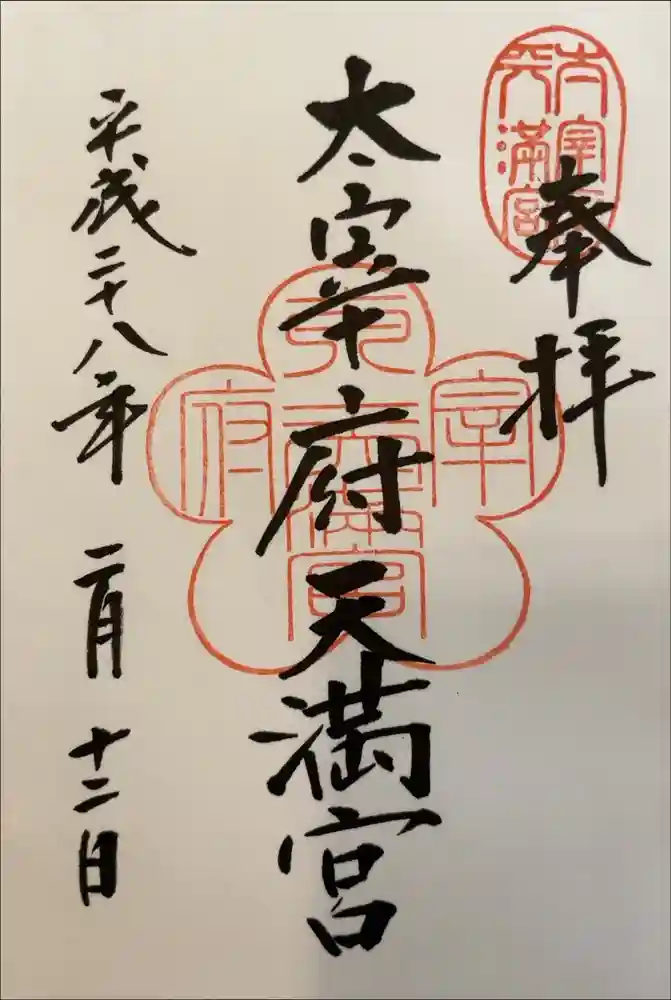 奉拝
太宰府天満宮
平成二十八年 二月 十二日
太宰府
天満宮
太宰府天満宮